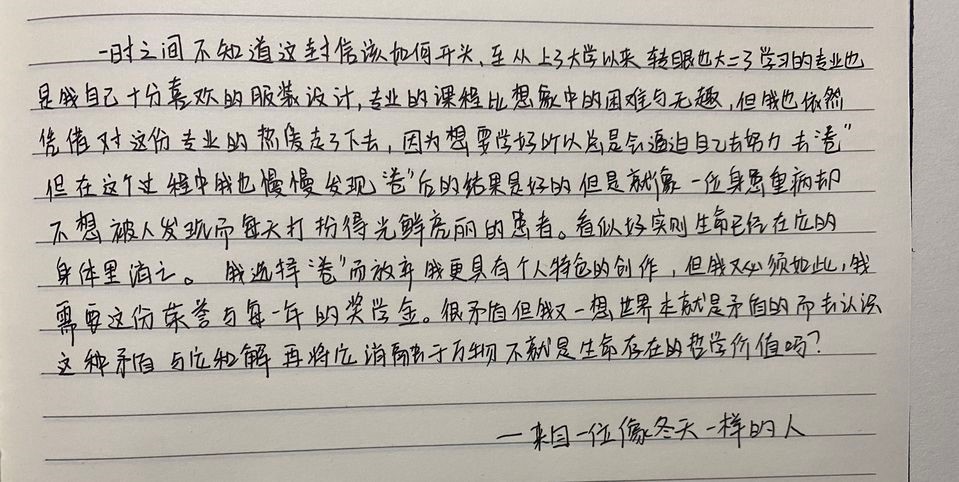 一时之间不知道这封信该如何开头,至从上了大学以来 转眼也大二了学习的专业也
是我自己十分喜欢的服装设计,专业的课程比想象中的困难与无趣,但我也依然
凭借对这份专业的热爱走了下去,因为想要学好所以总是会逼迫自己去努力 去“卷”
但在这个过程中我也慢慢发现“卷”后的结果是好的但是就像一位身患重病却
不想被人发现而每天打扮得光鲜亮丽的患者。看似好实则生命已经在它的
身体里消亡。 我选择“卷”而放弃我更具有个人特色的创作,但我又必须如此,我
需要这份荣誉与每一年的奖学金。很矛盾但我又一想世界本就是矛盾的而去认识
这种矛盾 与它和解 再将它消融于万物 不就是生命存在的哲学价值吗?
—来自一位像冬天一样的人